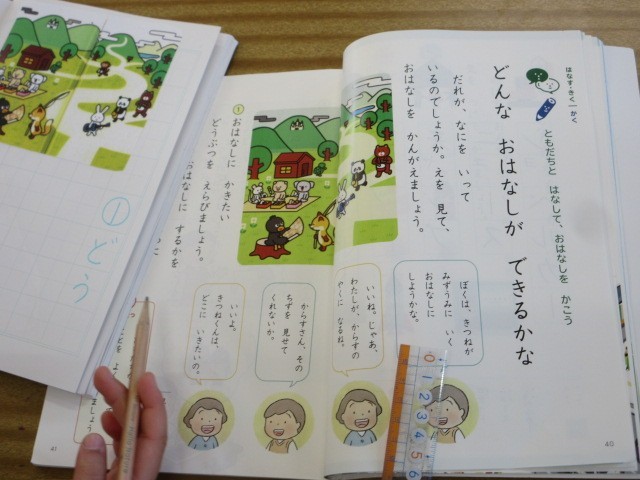 はなす・きく|かく
ともだちと はなして、おはなしを かこう
どんな おはなしが できるかな
だれが、なにを いって
いるのでしょうか。えを 見て、
おはなしを かんがえましょう。
ぼくは、きつねが
みずうみに いく
おはなしに
しようかな。
いいね。じゃあ、
わたしが、からすの
やくに なるね。
40
① おはなしに かきたい
どうぶつを えらびましょう。
おはなしに するかを
からすさん、その
ちずを 見せて
くれないか。
いいよ。
きつねくんは、
どこに いきたいの。
41
① どう
0 1 2 3 4 5 6